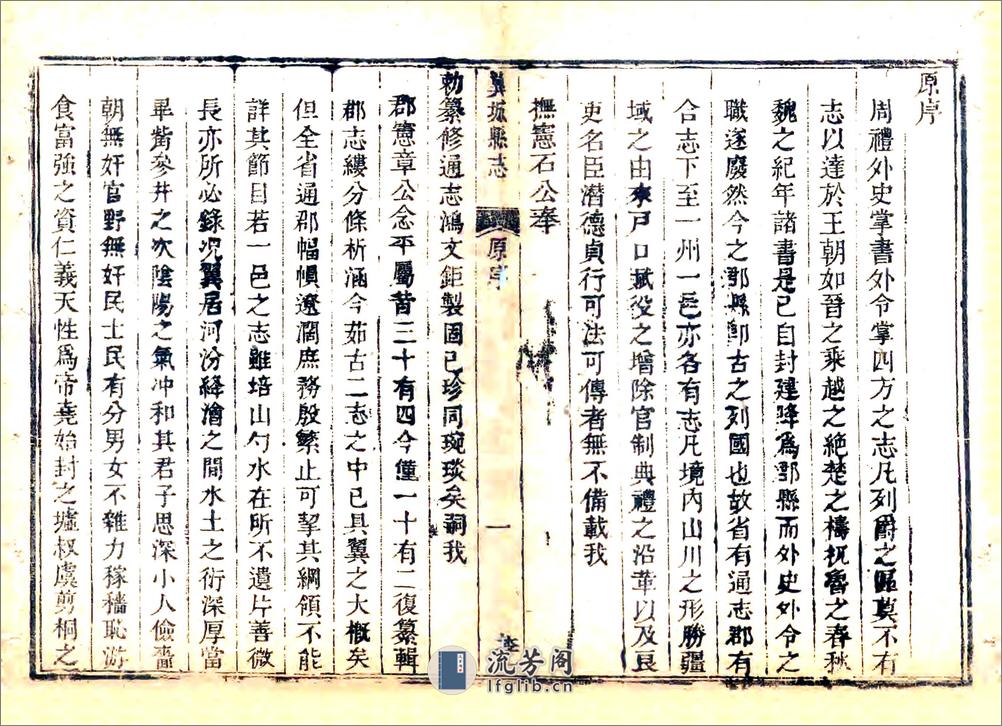 原序
周禮外史掌書外令掌四方之志凡列爵之區莫不有
志以達於王朝如晉之乘越之絶楚之檮杌魯之春秋
魏之紀年諸書是已自封建降爲郡縣而外史外令之
職遂廢然今之郡縣卽古之列國也故省有通志郡有
合志下至一州一邑亦各有志凡境內山川之形勝疆
域之由來戸口賦役之增除官制典禮之沿革以及良
吏名臣潛德貞行可法可傳者無不備載我
撫憲石公奉
翼城縣志 原序 一
勅纂修通志鴻文鉅製圖已珍同琬琰矣嗣我
郡憲章公念平屬昔三十有四今僅一十有二復纂輯
郡志縷分條析涵今茹古二志之中已具翼之大槪矣
但全省通郡幅幀遼濶庶務殷繁止可挈其綱領不能
詳其節目若一邑之志雖培山勺水在所不遺片善微
長亦所必錄况翼居河汾絳澮之間水土之衍深厚當
畢觜參井之次陰陽之氣冲和其君子思深小人儉嗇
朝無奸官野無奸民士民有分男女不雜力稼穡恥游
食富強之資仁義天性爲帝堯始封之墟叔虞剪桐之
流芳阁
lfglib.cn